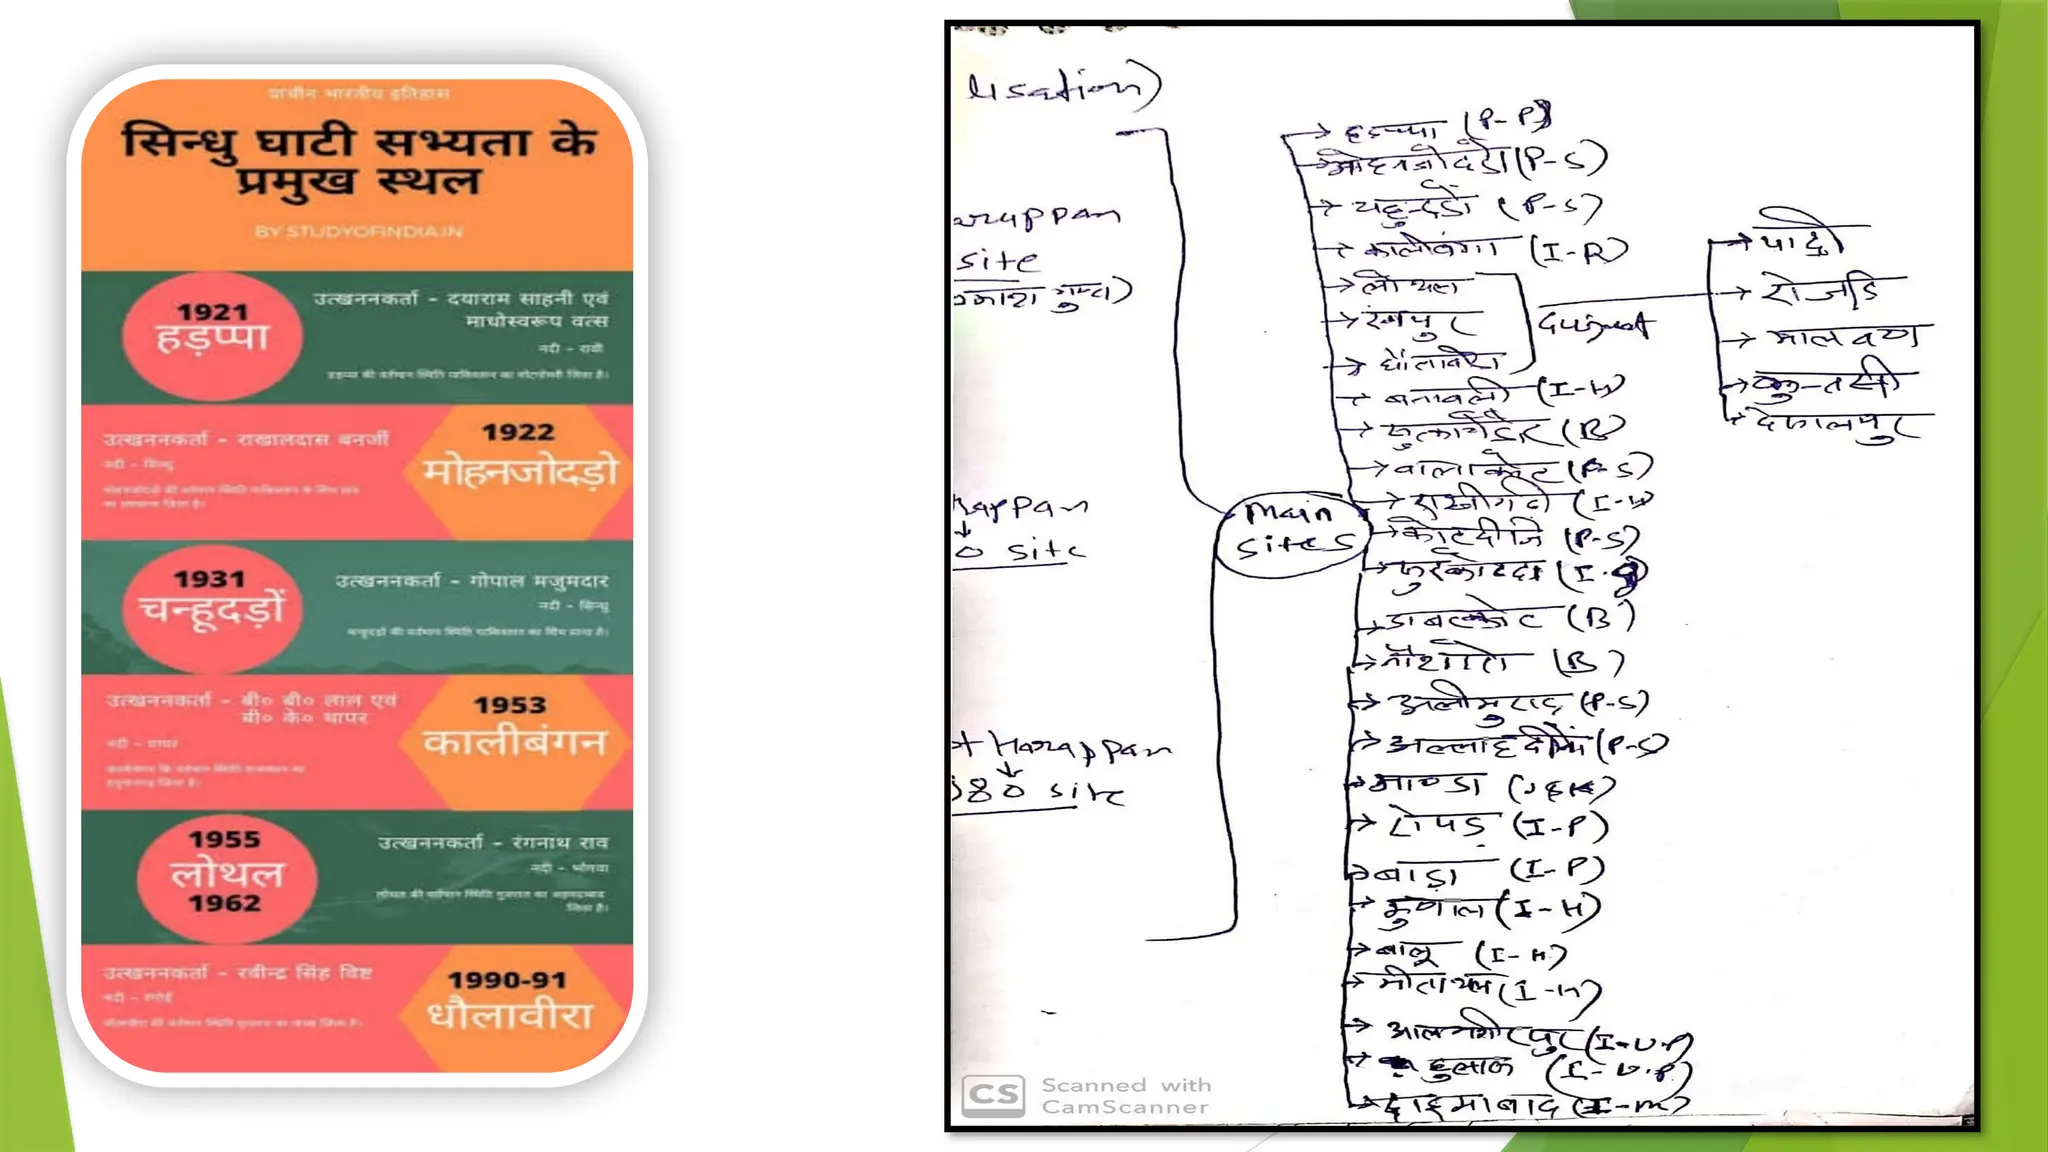 प्राचीन भारतीय इतिहास
सिन्धु घाटी सभ्यता के
प्रमुख स्थल
BY STUDYOFINDIA.IN
1921
हड़प्पा
उत्खननकर्ता - दयाराम साहनी एवं
माधोस्वरूप वत्स
नदी - रावी
उत्खननकर्ता - राखालदास बनर्जी
नदी - सिन्धु
1922
मोहनजोदड़ो
1931
चन्हूदड़ों
उत्खननकर्ता - गोपाल मजुमदार
नदी - सिन्धु
उत्खननकर्ता - बी० बी० लाल एवं
बी० के० थापर
नदी - घग्घर
1953
कालीबंगन
1955
लोथल
1962
उत्खननकर्ता - रंगनाथ राव
नदी - भोगवा
उत्खननकर्ता - रवीन्द्र सिंह विष्ट
1990-91
धौलावीरा
lisation)
arappan
site
गुप्ता)
rappan
↓
0 site
+ Harappan
↓
80 site
Main
Sites
→ हड़प्पा (P-P)
→ मोहनजोदड़ो (P-S)
→ चहुन्दड़ो (P-S)
→ कालीबंगा (I-R)
→ लोथल
→ रंगपुर
→ धौलावीरा
→ बनावली (I-H)
(B)
→ बालाकोट (P-S)
→ राखीगढ़ी (I-H)
→ कोटदीजि (P-S)
→ सुरकोटदा (I-G)
→ डाबरकोट (B)
→ नौशारो (B)
→ अलीमुराद (P-S)
→ अल्लाहदीनों (P-S)
→ माण्डा (J&K)
→ रोपड़ (I-P)
→ बाड़ा (I-P)
→ कुणाल (I-H)
→ बालू (I-H)
→ मीताथल (I-H)
→ आलमगीरपुर (I-U.P)
→ हुलास (I-U.P)
→ दाइमाबाद (I-M)
→ पाद्री
→ रोजडि
→ मालवण
→ कुन्तासी
→ देसलपुर
CS Scanned with
CamScanner